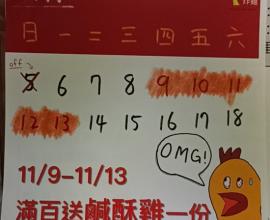 日 一 二 三 四 五 六
off
5 6 7 8 9 10 11
12 13 14 15 16 17 18
OMG!
11/9-11/13
滿百送鹹酥雞一份